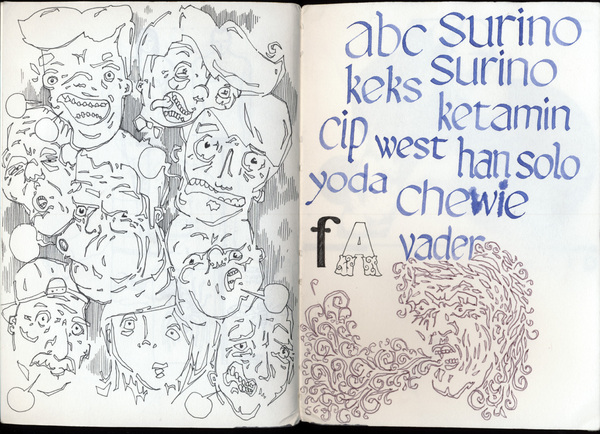 abc surino
keks surino
ketamin
cip west han solo
yoda chewie
fA vader